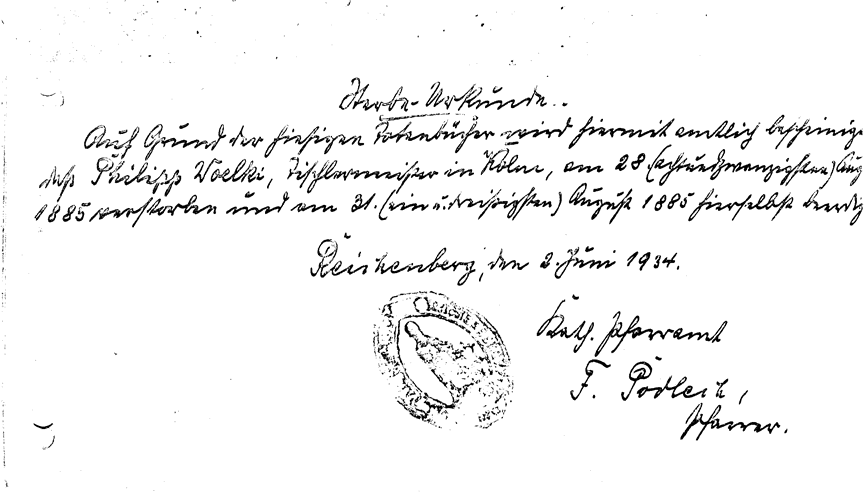 Sterbe-Urkunde.
Auf Grund der hiesigen Totenbücher wird hiermit amtlich bescheinigt
daß Philipp Woelki, Tischlermeister in Kölm, am 28 (achtundzwanzigsten) Aug
1885 verstorben und am 31. (ein u. dreißigsten) August 1885 hierselbst beerdig
Reichenberg, den 2. Juni 1934.
Kath. Pfarramt
F. Podlech,
Pfarrer.